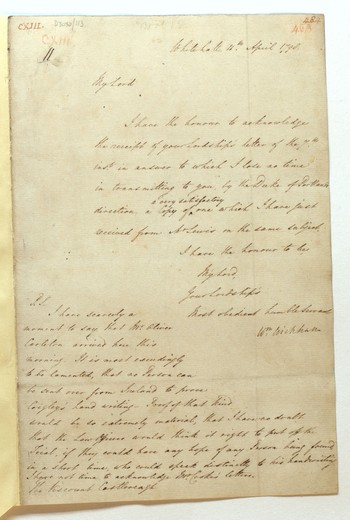 CXIII.
Whitehall 11th April 1798.
My Lord
I have the honour to acknowledge
the receipt of your Lordship's letter of the 7th
inst in answer to which I lose no time
in transmitting to you, by the Duke of Portland's
a very satisfactory
direction, a Copy of one which I have just
received from Mr Lewis on the same subject
I have the honour to be
My Lord,
Your Lordship's
Most obedient humble Servant
Wm Wickham
P.S.
I have scarcely a
moment to say that Mr Oliver
arrived here this
morning. It is most exceedingly
to be lamented, that no Person can
be sent over from Ireland to prove
Coigley's hand writing. Proof of that kind
would be so extremely material, that I have no doubt
that the Law Officers would think it right to put off the
Trial, if they could have any hope of any Person being found
in a short time, who could speak distinctly to his handwriting
I have not time to acknowledge Mr Cooke's letters.
The Viscount Castlereagh